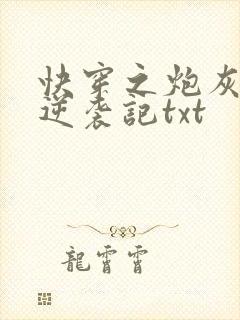 快穿之炮灰
逆袭記txt
龍霄霄